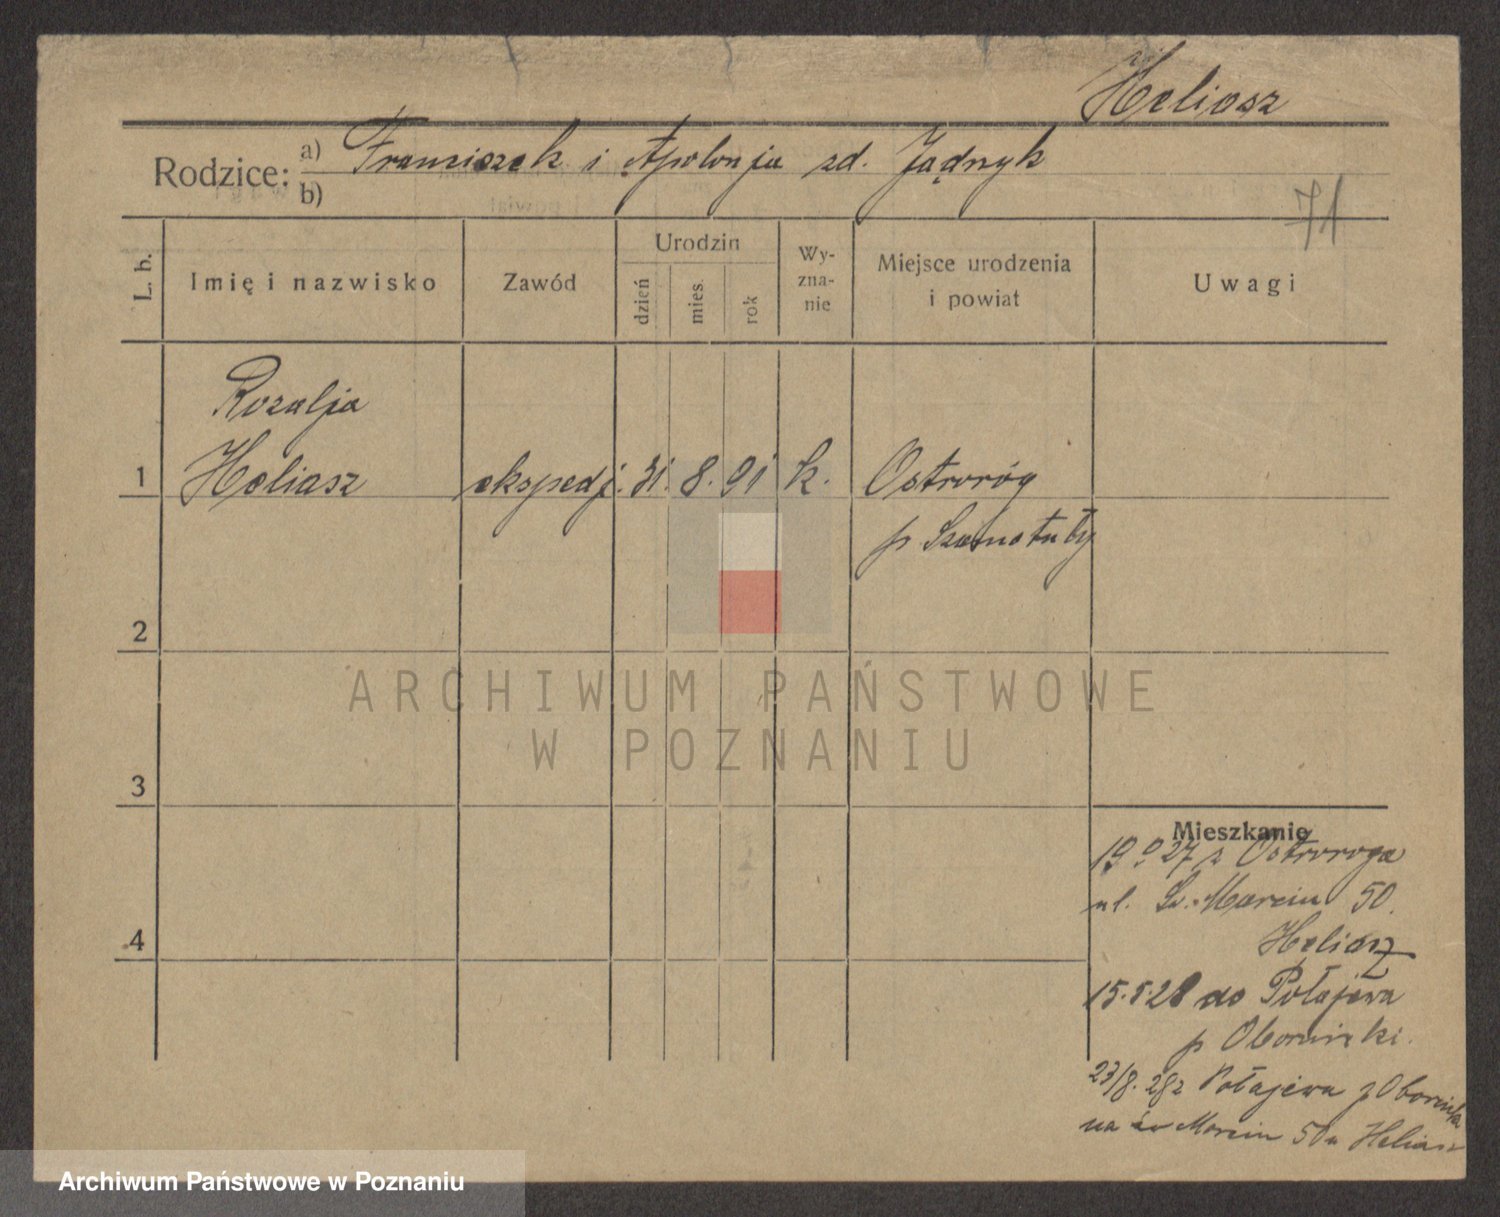 Heliasz
Rodzice: a) Franciszek i Apolonja zd. Jądrzyk
b)
71
L. b.
Imię i nazwisko
Zawód
Urodzin
dzień
mies.
rok
Wy-
zna-
nie
Miejsce urodzenia
i powiat
Uwagi
Rozalja
1 Heliasz ekspedj. 31. 8. 91 k. Ostroróg
p Szamotuły
2
3
4
Mieszkanie
19 9 27 z Ostroroga
ul. Św. Marcin 50.
Heliasz
15.5.28 do Połajewa
p Oborniki.
23/8. 28 z Połajewa p Obornik
na św Marcin 50 u Heliasz
ARCHIWUM PAŃSTWOWE
W POZNANIU
Archiwum Państwowe w Poznaniu